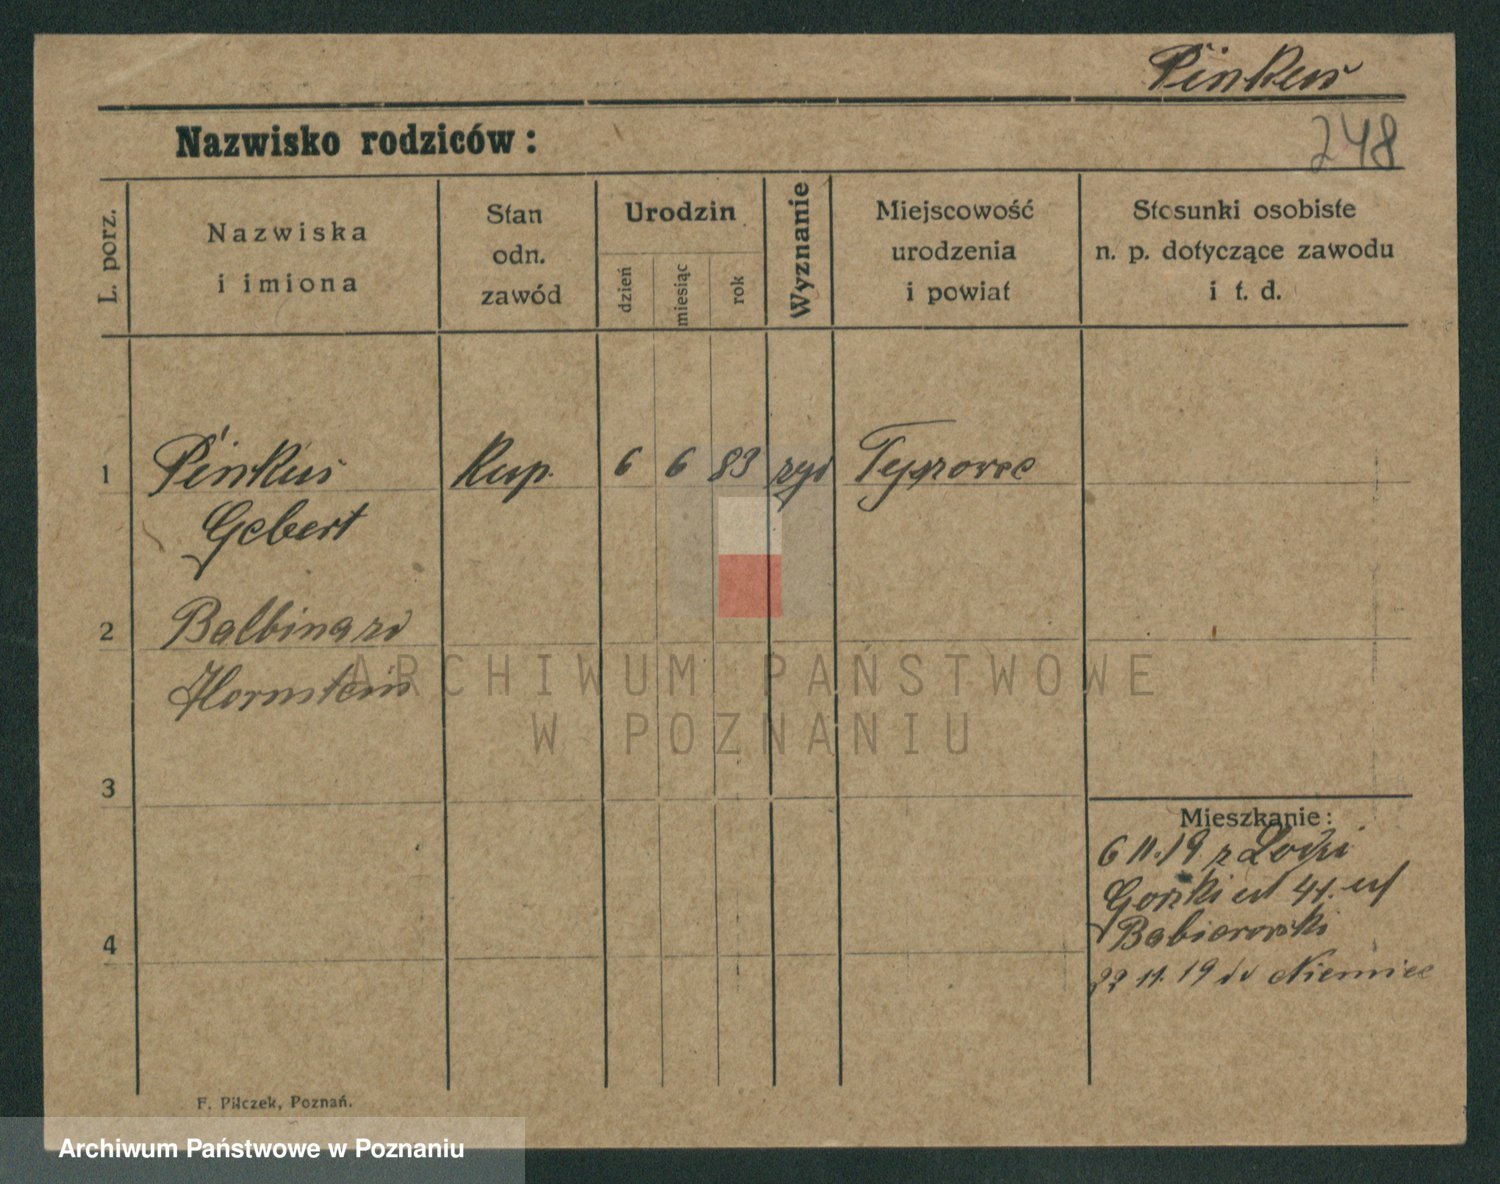 Pinkus
248
Nazwisko rodziców:
L. porz.
Nazwiska
i imiona
Stan
odn.
zawód
Urodzin
dzień
miesiąc
rok
Wyznanie
Miejscowość
urodzenia
i powiat
Stosunki osobiste
n. p. dotyczące zawodu
i t. d.
1 Pinkus Kup. 6 6 83 zyd Tyszowce
Gebert
2 Balbina
Hornstein
3
4
Mieszkanie:
6 11.19 z Łodzi
41.
22 11. 19 do Niemiec
F. Pilczek, Poznań.
ARCHIWUM PAŃSTWOWE
W POZNANIU
Archiwum Państwowe w Poznaniu